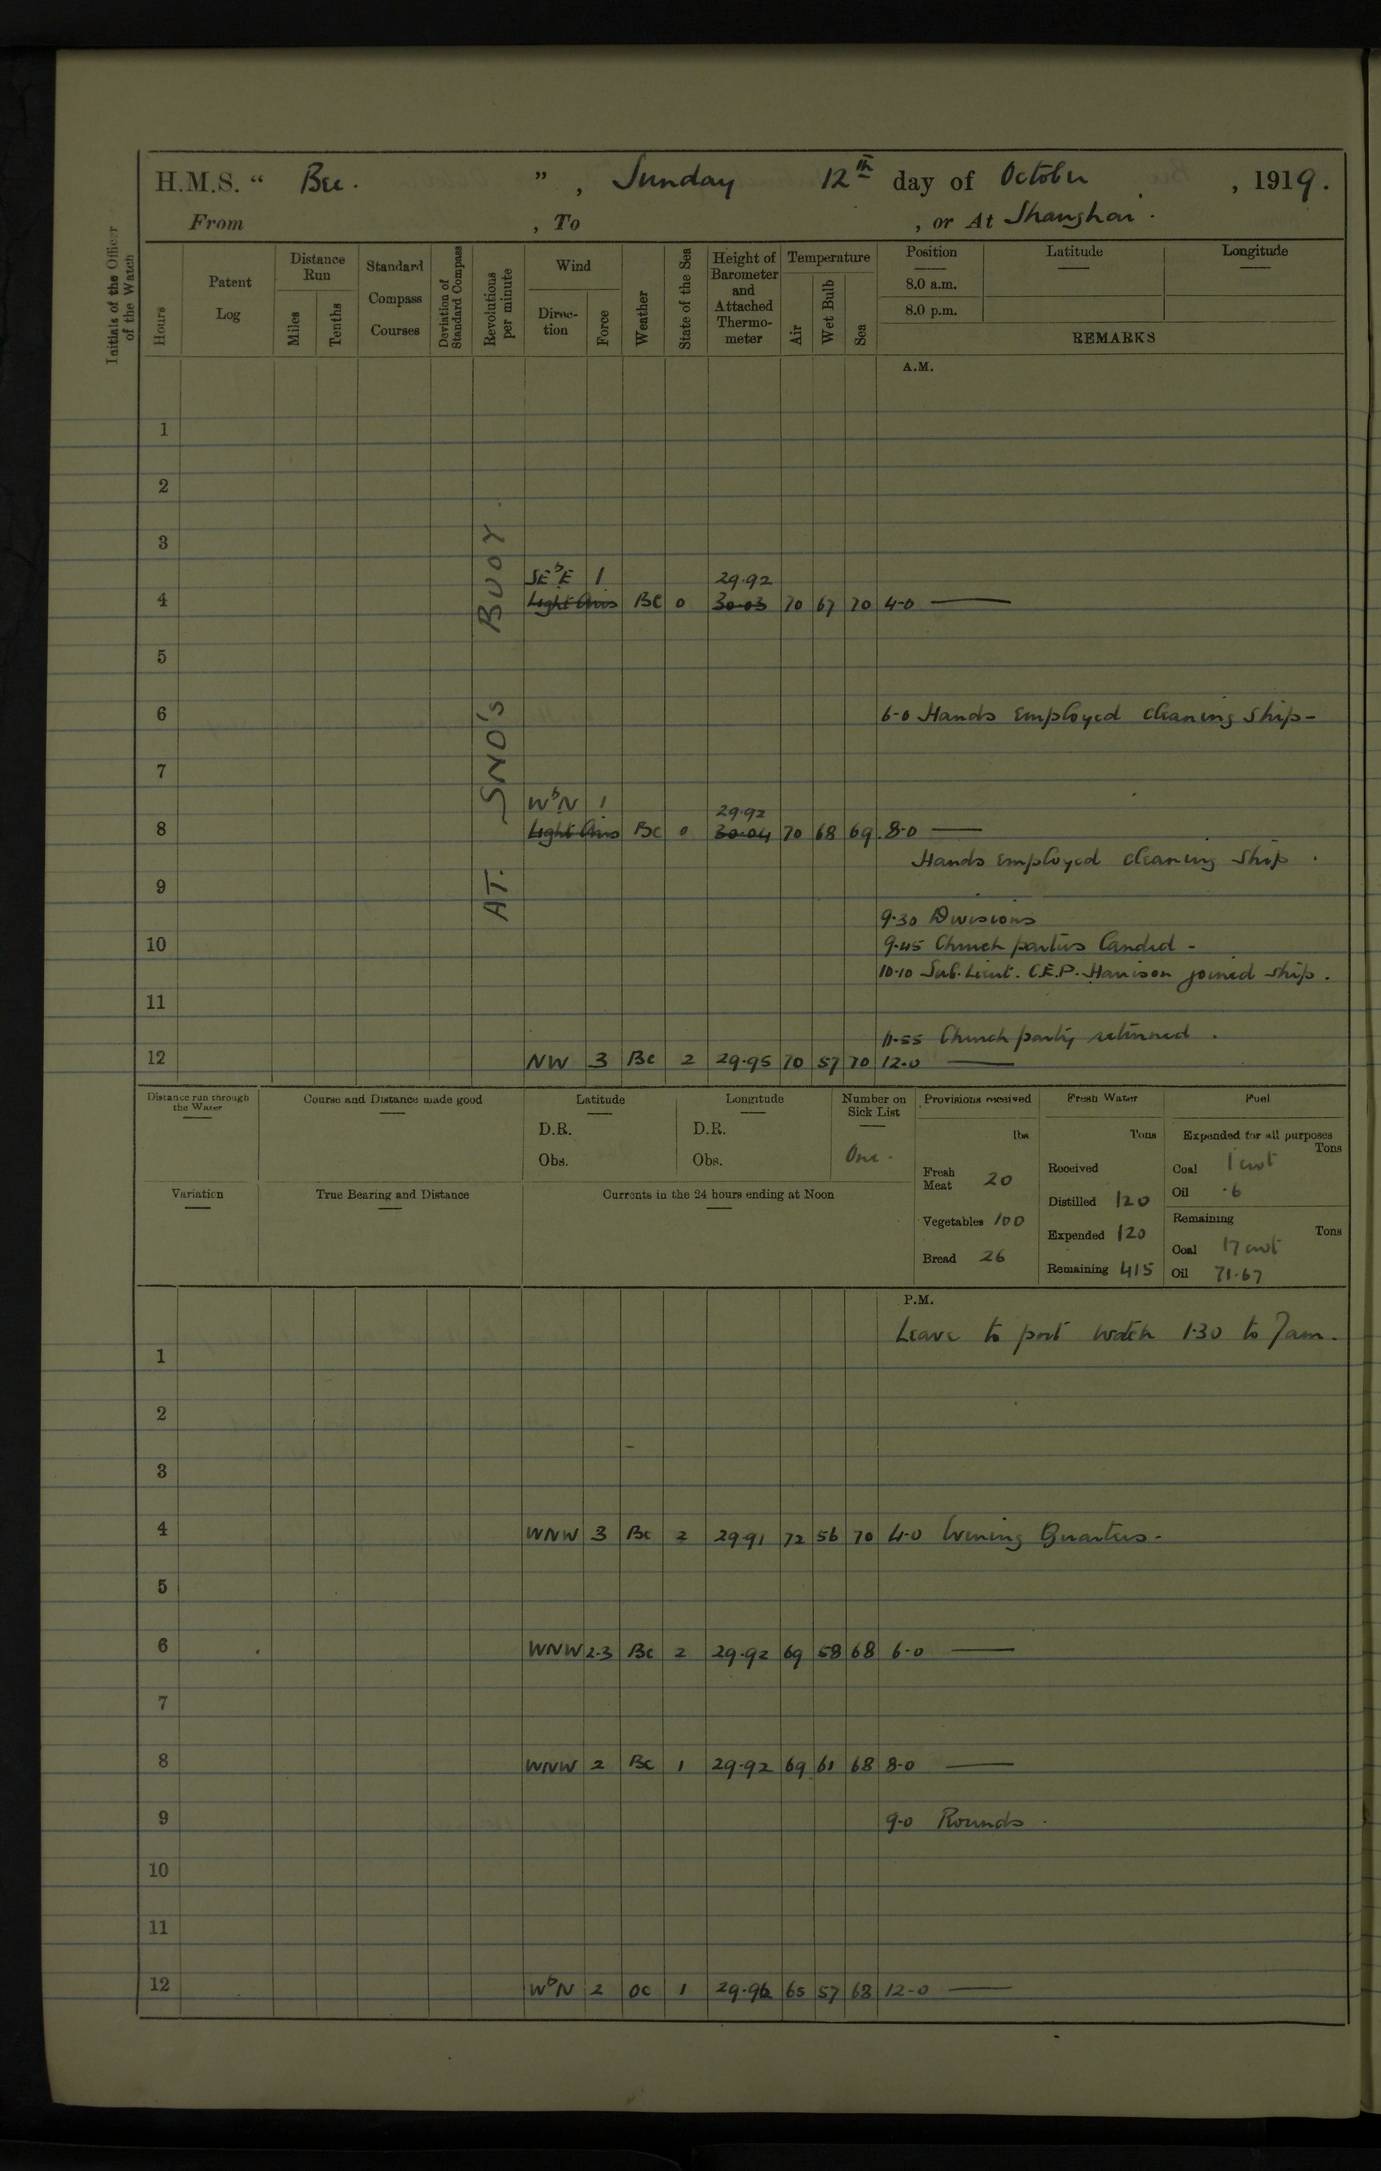 H.M.S. “ Bee. ” , Sunday 12th day of October , 1919.
From , To , or At Shanghai.
Initials of the Officer of the Watch
Hours
Patent Log
Distance Run
Miles
Tenths
Standard Compass Courses
Deviation of Standard Compass
Revolutions per minute
Wind
Direc-tion
Force
Weather
State of the Sea
Height of Barometer and Attached Thermo-meter
Temperature
Air
Wet Bulb
Sea
Position
8.0 a.m.
8.0 p.m.
Latitude
Longitude
REMARKS
A.M.
AT. SNO's BUOY.
1
2
3
SEbE 1 29.92
4 Light Airs BC 0 30.03 70 67 70 4-0 —
5
6 6-0 Hands employed cleaning ship-
7
WbN 1 29.92
8 Light Airs BC 0 30.04 70 68 69 8-0 —
Hands employed cleaning ship.
9
9.30 Divisions
10 9.45 Church parties landed -
10.10 Sub. Lieut. C.E.P. Harrison joined ship.
11
11-55 Church party returned.
12 NW 3 BC 2 29.95 70 57 70 12.0 —
Distance run through the Water
Course and Distance made good
Latitude
D.R.
Obs.
Longitude
D.R.
Obs.
Number on Sick List
One.
Variation
True Bearing and Distance
Currents in the 24 hours ending at Noon
Provisions received
lbs
Fresh Meat 20
Vegetables 100
Bread 26
Fresh Water
Tons
Received
Distilled 120
Expended 120
Remaining 415
Fuel
Expended for all purposes
Tons
Coal 1 cwt
Oil .6
Remaining
Tons
Coal 17 cwt
Oil 71.67
P.M.
Leave to port watch 1.30 to 7am.
1
2
3
4 WNW 3 BC 2 29.91 72 56 70 4-0 Evening Quarters.
5
6 WNW 2-3 BC 2 29.92 69 58 68 6-0 —
7
8 WNW 2 BC 1 29.92 69 61 68 8-0 —
9 9-0 Rounds.
10
11
12 WbN 2 OC 1 29.96 65 57 68 12-0 —